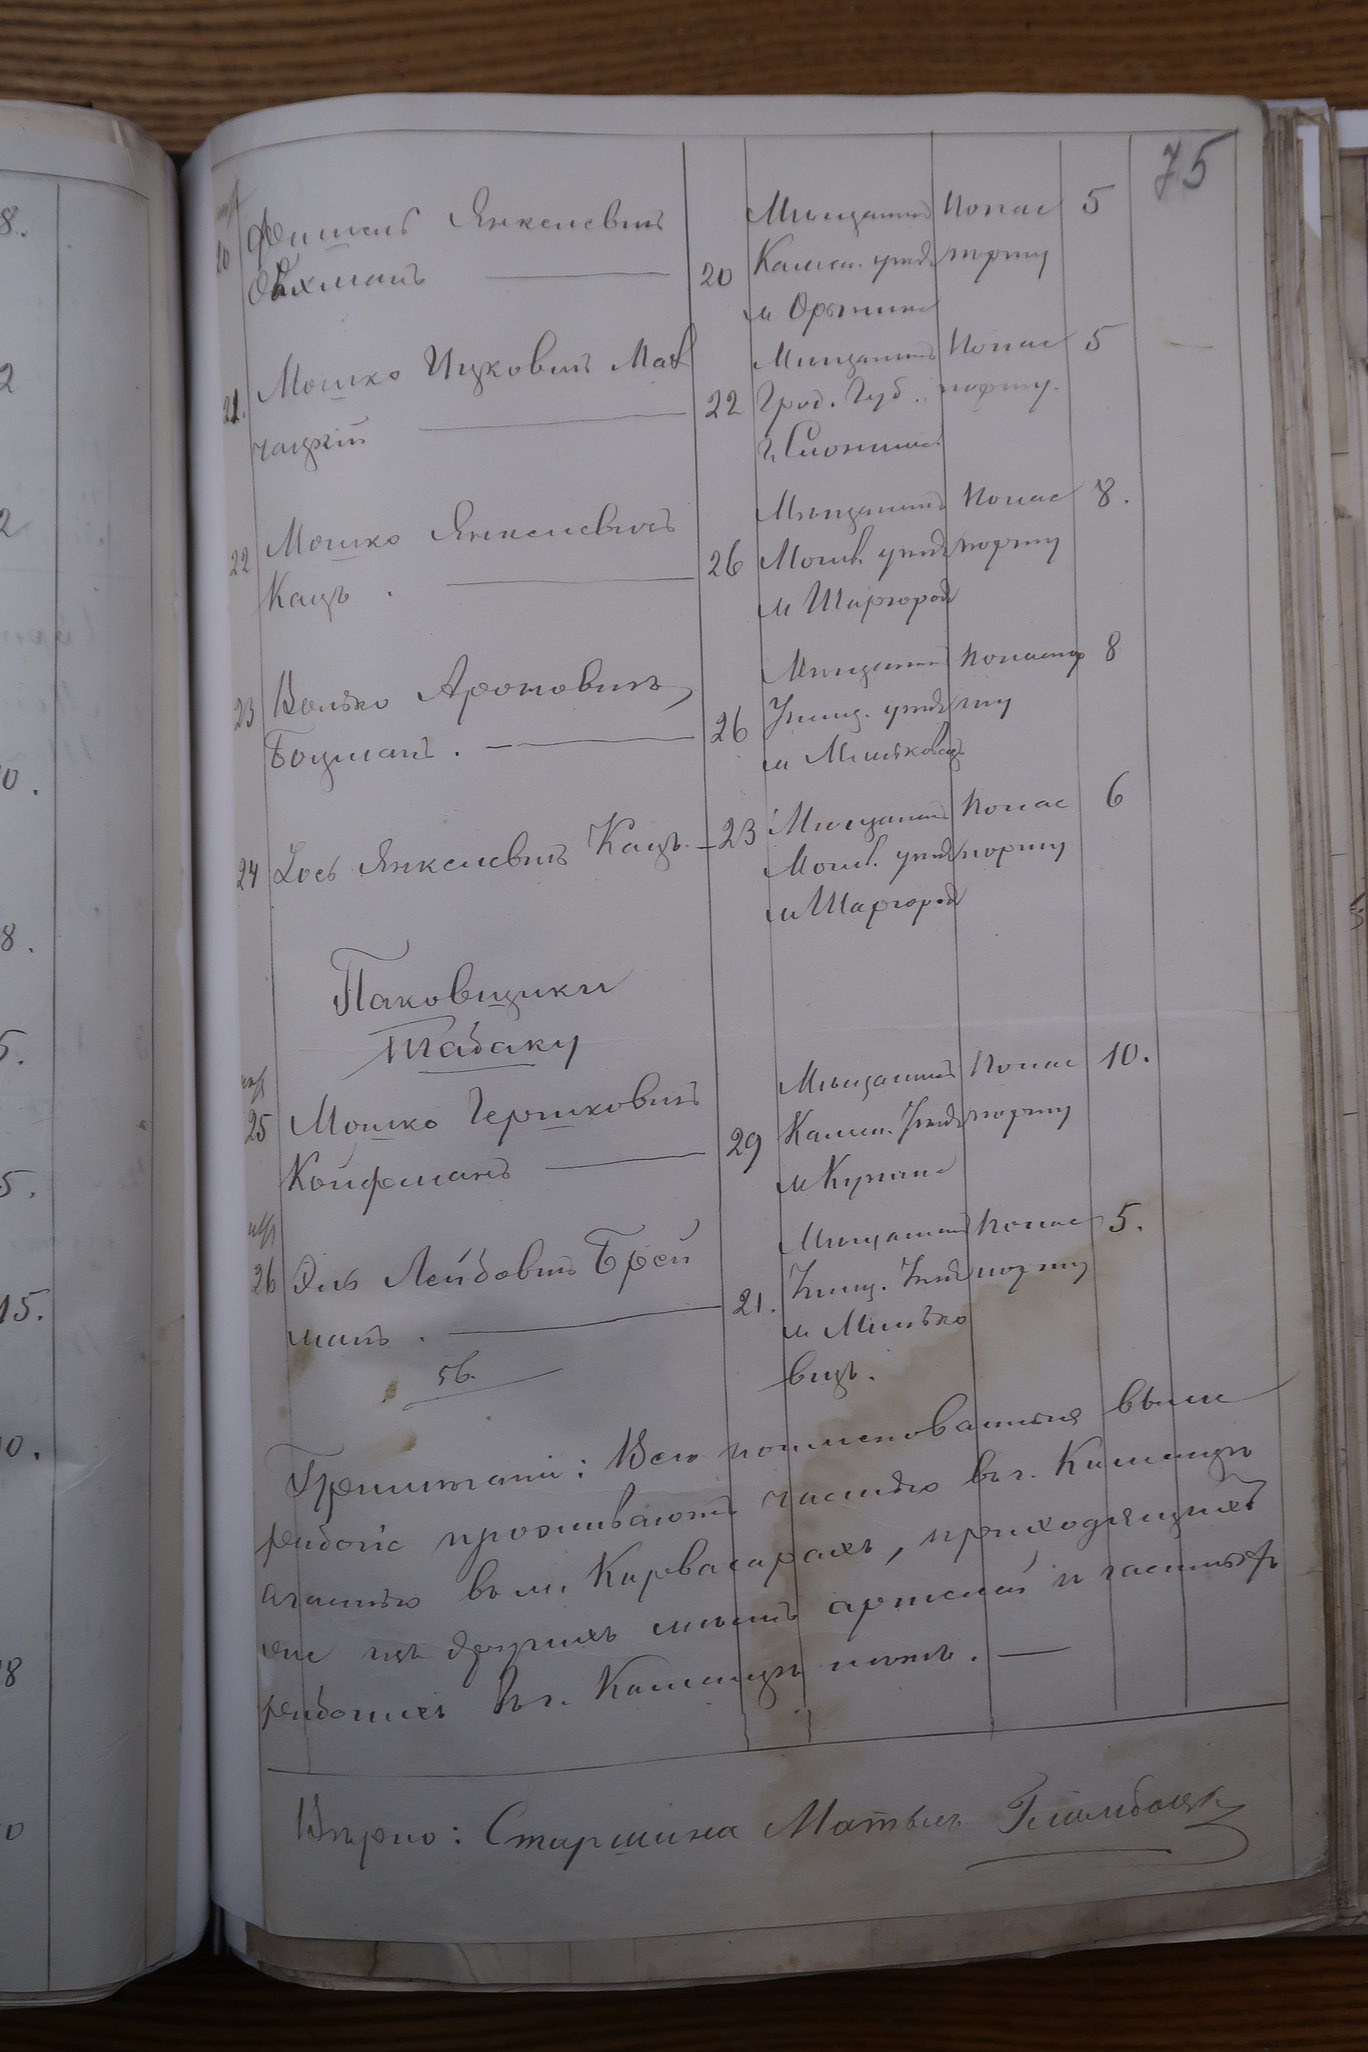 75
20 Фишель Янкелевичъ
Фухманъ 20
Мѣщанинъ
Камен. уѣзд
м Орынинъ
По пас
порту
5
21. Мошко Ицковичъ Мав
чацкій 22
Мѣщанинъ
Грод. Губ.
г. Слонима
По пас
порту.
5
22 Мошко Янкелевичъ
Кацъ. 26
Мѣщанинъ
Могил. уѣзд
м Шаргород
По пас
порту
8.
23 Волько Ароновичъ
Боцманъ. 26
Мѣщанин
Ушиц. уѣзд
м Миньковец
По паспор
ту
8
24 Лось Янкелевичъ Кацъ. 23
Мѣщанин
Могил. уѣзд
м Шаргород
По пас
порту
6
Паковщики
Табаку
25 Мошко Гершковичъ
Койфманъ 29
Мѣщанинъ
Камен. Уѣзд
м Купин
По пас
порту
10.
26 Эль Лейбовичъ Брей
манъ. 21.
Мѣщанин
Ушиц. Уѣзд
м Минько
вцъ.
По пас
порту
5.
56.
Примѣчаніе: Всѣ поименованныя выше
рабочіе проживаютъ частью въ г. Каменцѣ
а частью въ м. Карвасарахъ, приходящихъ
же изъ другихъ мѣстъ артелей и частныхъ
рабочихъ въ г. Каменцѣ нѣтъ. —
Вѣрно: Старшина Матвѣй